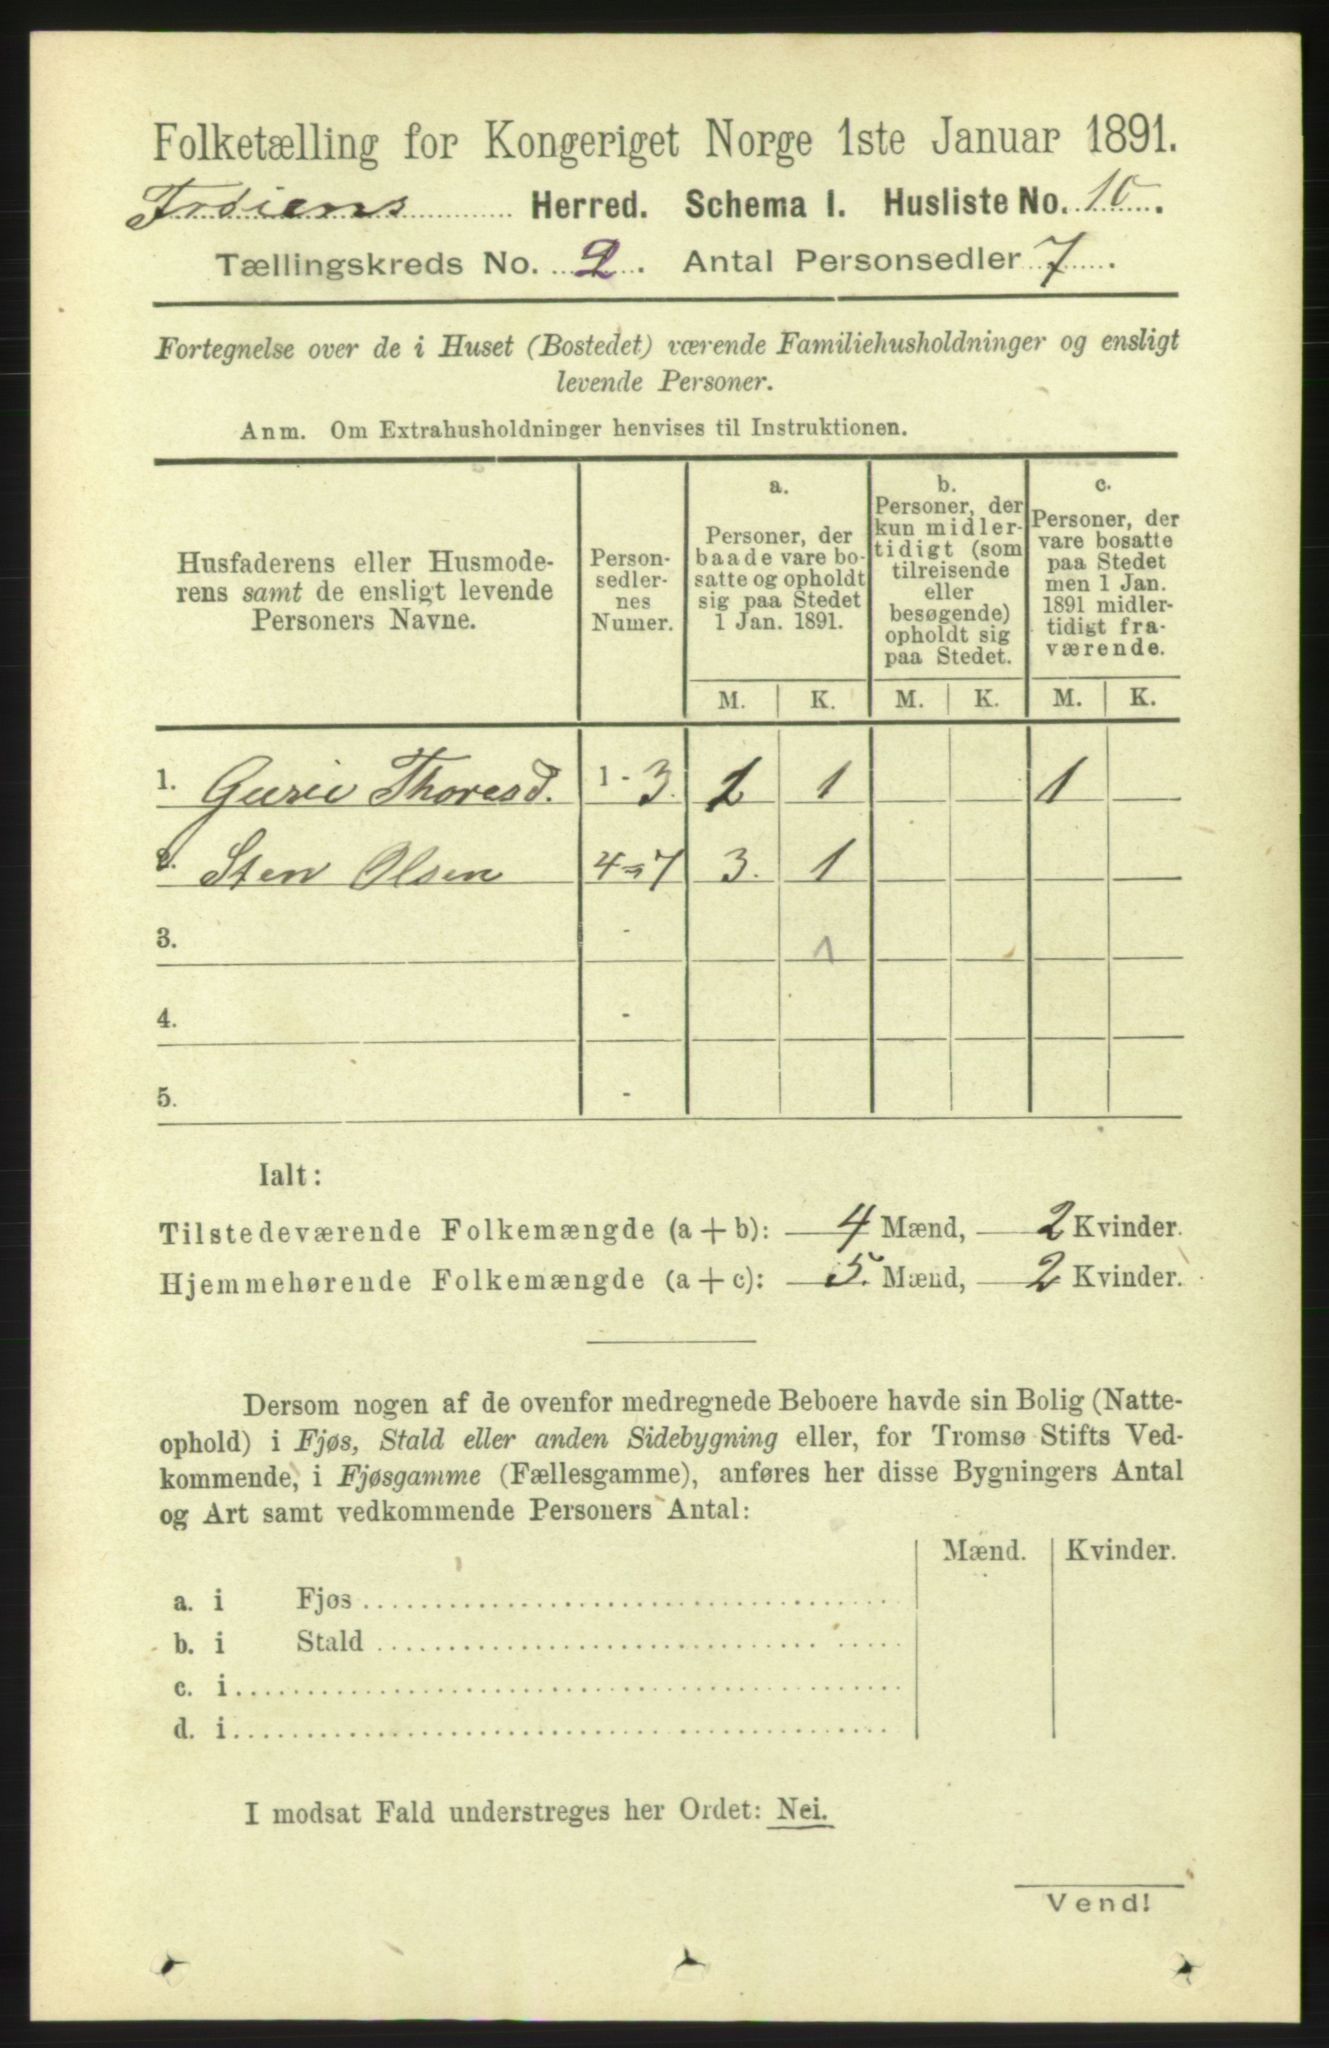 Folketælling for Kongeriget Norge 1ste Januar 1891.
Frøiens Herred. Schema I. Husliste No. 10.
Tællingskreds No. 2. Antal Personsedler 7.
Fortegnelse over de i Huset (Bostedet) værende Familiehusholdninger og ensligt
levende Personer.
Anm. Om Extrahusholdninger henvises til Instruktionen.
Husfaderens eller Husmode-
rens samt de ensligt levende
Personers Navne.
Person-
sedler-
nes
Numer.
a.
Personer, der
baade vare bo-
satte og opholdt
sig paa Stedet
1 Jan. 1891.
b.
Personer, der
kun midler-
tidigt (som
tilreisende
eller
besøgende)
opholdt sig
paa Stedet.
c.
Personer, der
vare bosatte
paa Stedet
men 1 Jan.
1891 midler-
tidigt fra-
værende.
M. K. M. K. M. K.
1. Gurie Thoresd. 1 - 3. 1 1 1
2. Sten Olsen 4-7 3. 1
3. - 1
4. -
5. -
Ialt:
Tilstedeværende Folkemængde (a + b): 4 Mænd, 2 Kvinder.
Hjemmehørende Folkemængde (a + c): 5. Mænd, 2 Kvinder.
Dersom nogen af de ovenfor medregnede Beboere havde sin Bolig (Natte-
ophold) i Fjøs, Stald eller anden Sidebygning eller, for Tromsø Stifts Ved-
kommende, i Fjøsgamme (Fællesgamme), anføres her disse Bygningers Antal
og Art samt vedkommende Personers Antal:
Mænd. Kvinder.
a. i Fjøs
b. i Stald
c. i
d. i
I modsat Fald understreges her Ordet: Nei.
Vend!